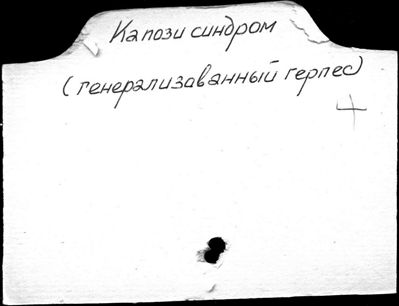 Капози синдром
(генерализованный герпес)